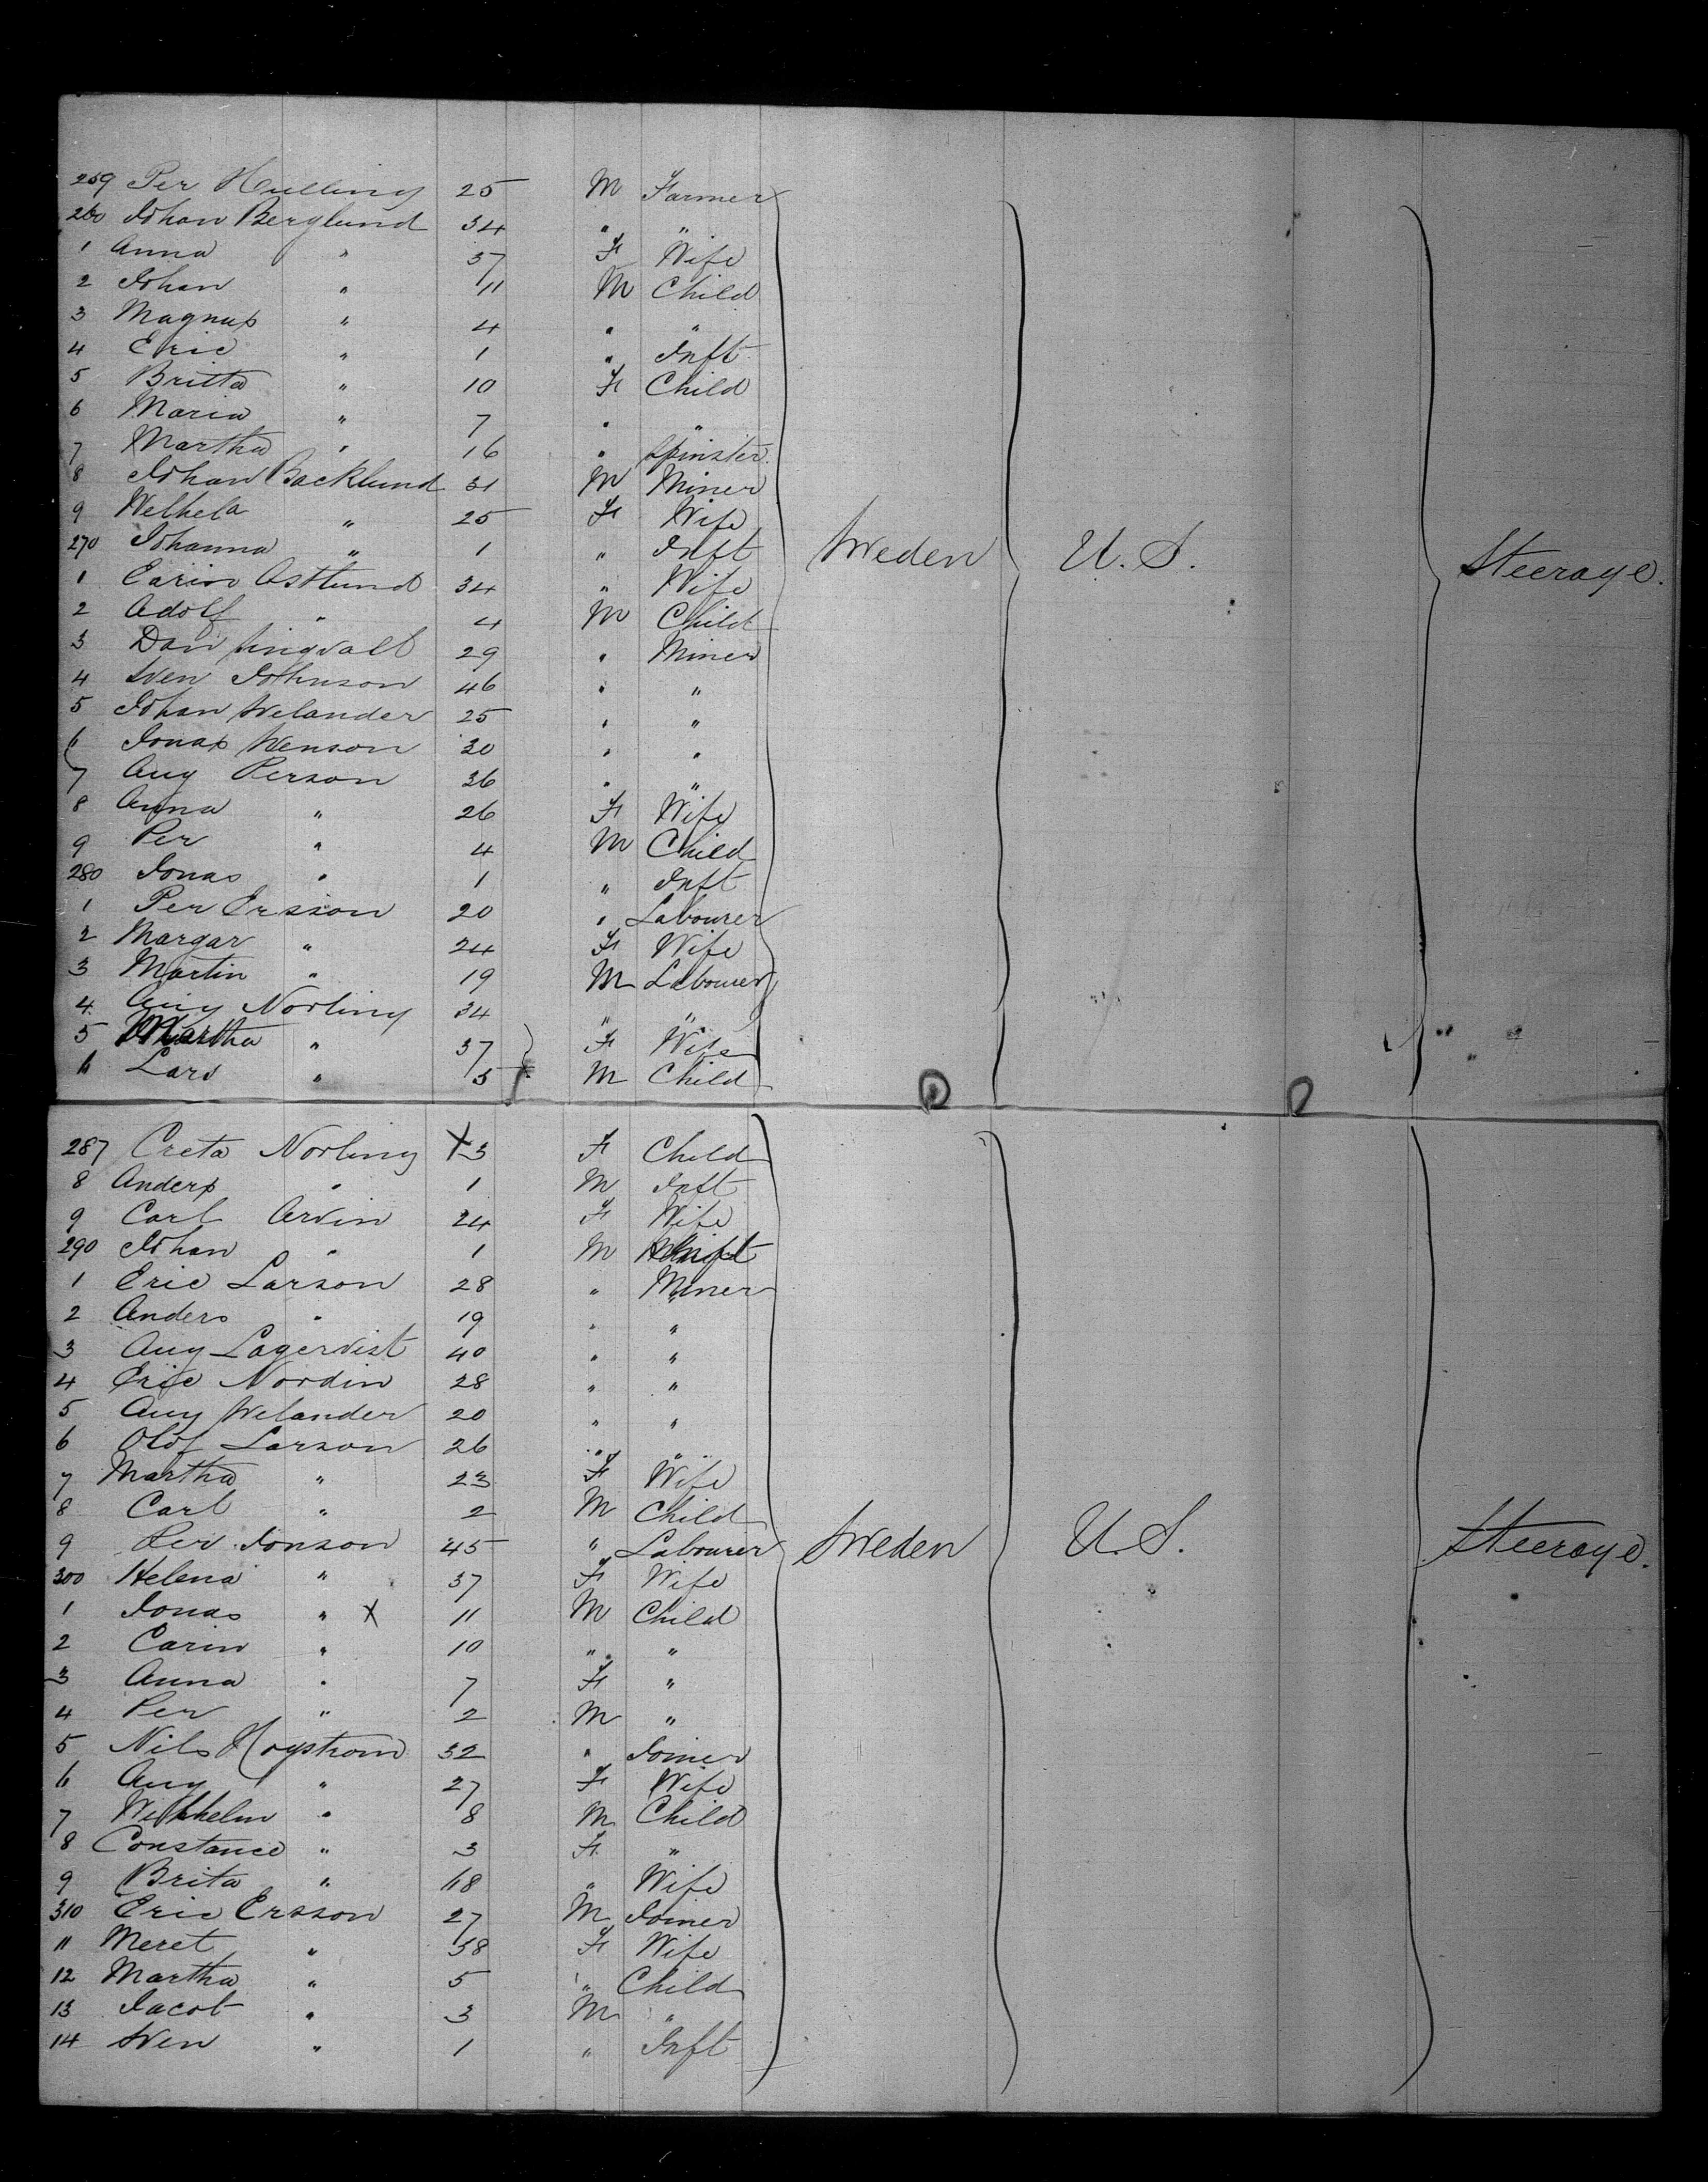 259 Per Hulling 25 M Farmer
260 Johan Berglund 34 " "
1 Anna " 37 F Wife
2 Johan " 11 M Child
3 Magnus " 4 " "
4 Eric " 1 " Inft
5 Britta " 10 F Child
6 Maria " 7 " "
7 Martha " 16 " Spinster
8 Johan Backlund 31 M Miner
9 Welhela " 25 F Wife
270 Johanna " 1 " Inft
Sweden U.S. Steerage.
1 Carin Astlund 34 " Wife
2 Adolf " 4 M Child
3 Dan 29 " Miner
4 Sven Johnson 46 " "
5 Johan Welander 25 " "
6 Jonas 30 " "
7 Aug Person 36 " "
8 Anna " 26 F Wife
9 Per " 4 M Child
280 Jonas " 1 " Inft
1 Per Ersson 20 " Labourer
2 Margar " 24 F Wife
3 Martin " 19 M Labourer
4 Aug Norling 34 " "
5 Martha " 37 F Wife
6 Lars " 5 M Child
287 Creta Norling X 3 F Child
8 Anders " 1 M Inft
9 Carl Arvin 24 F Wife
290 Johan " 1 M Inft
1 Eric Larson 28 " Miner
2 Anders " 19 " "
3 Aug Lagervist 40 " "
4 Eric Nordin 28 " "
5 Aug Welander 20 " "
6 Olof Larson 26 " "
7 Martha " 23 F Wife
8 Carl " 2 M Child
9 Per Jonson 45 " Labourer
Sweden U.S. Steerage.
300 Helena " 37 F Wife
1 Jonas " X 11 M Child
2 Carin " 10 " "
3 Anna " 7 F "
4 Per " 2 M "
5 Nils Hogstrom 32 " Joiner
6 Aug " 27 F Wife
7 Wilhhelm " 8 M Child
8 Constance " 3 F "
9 Brita " 68 " Wife
310 Eric Ersson 27 M Joiner
11 Meret " 38 F Wife
12 Martha " 5 " Child
13 Jacob " 3 M "
14 Sven " 1 " Inft